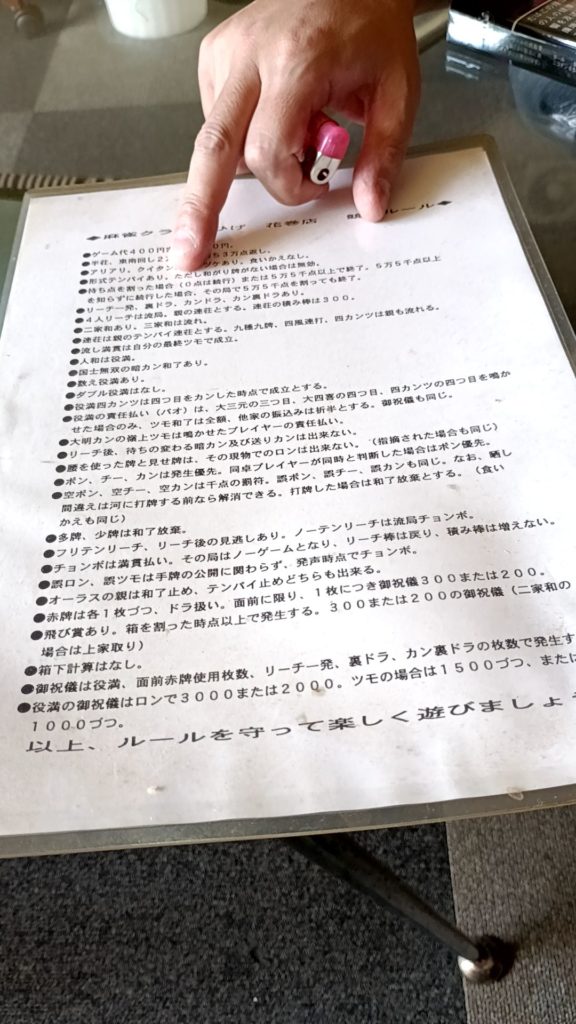 ◆麻雀クラ ひげ 花巻店 ルール◆
●ゲーム代400円 0円。
●半荘、東南回し2 53万点返し。
●アリアリ、クイタン ツケあり。食いかえなし。
●形式テンパイあり。ただし和がり牌がない場合は無効。
●持ち点を割った場合(0点は続行)または5万5千点以上で終了。5万5千点以上
を知らずに続行した場合、その局で5万5千点を割っても終了。
●リーチ一発、裏ドラ、カンドラ、カン裏ドラあり。
●4人リーチは流局。親の連荘とする。連荘の積み棒は300。
●二家和あり。三家和は流れ。
●連荘は親のテンパイ連荘とする。九種九牌、四風連打、四カンツは親も流れる。
●流し満貫は自分の最終ツモで成立。
●人和は役満。
●国士無双の暗カン和了あり。
●数え役満あり。
●ダブル役満はなし。
●役満四カンツは四つ目をカンした時点で成立とする。
●役満の責任払い(パオ)は、大三元の三つ目、大四喜の四つ目、四カンツの四つ目を鳴か
せた場合のみ、ツモ和了は全額、他家の振込みは折半とする。御祝儀も同じ。
●大明カンの嶺上ツモは鳴かせたプレイヤーの責任払い。
●リーチ後、待ちの変わる暗カン及び送りカンは出来ない。
●腰を使った牌と見せ牌は、その現物でのロンは出来ない。(指摘された場合も同じ)
●ポン、チー、カンは発生優先。同卓プレイヤーが同時と判断した場合はポン優先。
●空ポン、空チー、空カンは千点の罰符。誤ポン、誤チー、誤カンも同じ。なお、晒し
間違えは河に打牌する前なら解消できる。打牌した場合は和了放棄とする。(食い
かえも同じ)
●多牌、少牌は和了放棄。
●フリテンリーチ、リーチ後の見逃しあり。ノーテンリーチは流局チョンボ。
●チョンボは満貫払い。その局はノーゲームとなり、リーチ棒は戻り、積み棒は増えない。
●誤ロン、誤ツモは手牌の公開に関わらず、発声時点でチョンボ。
●オーラスの親は和了止め、テンパイ止めどちらも出来る。
●赤牌は各1枚づつ、ドラ扱い。面前に限り、1枚につき御祝儀300または200。
●飛び賞あり。箱を割った時点以上で発生する。300または200の御祝儀(二家和の
場合は上家取り)
●箱下計算はなし。
●御祝儀は役満、面前赤牌使用枚数、リーチ一発、裏ドラ、カン裏ドラの枚数で発生す
●役満の御祝儀はロンで3000または2000。ツモの場合は1500づつ、または
1000づつ。
以上、ルールを守って楽しく遊びましょう